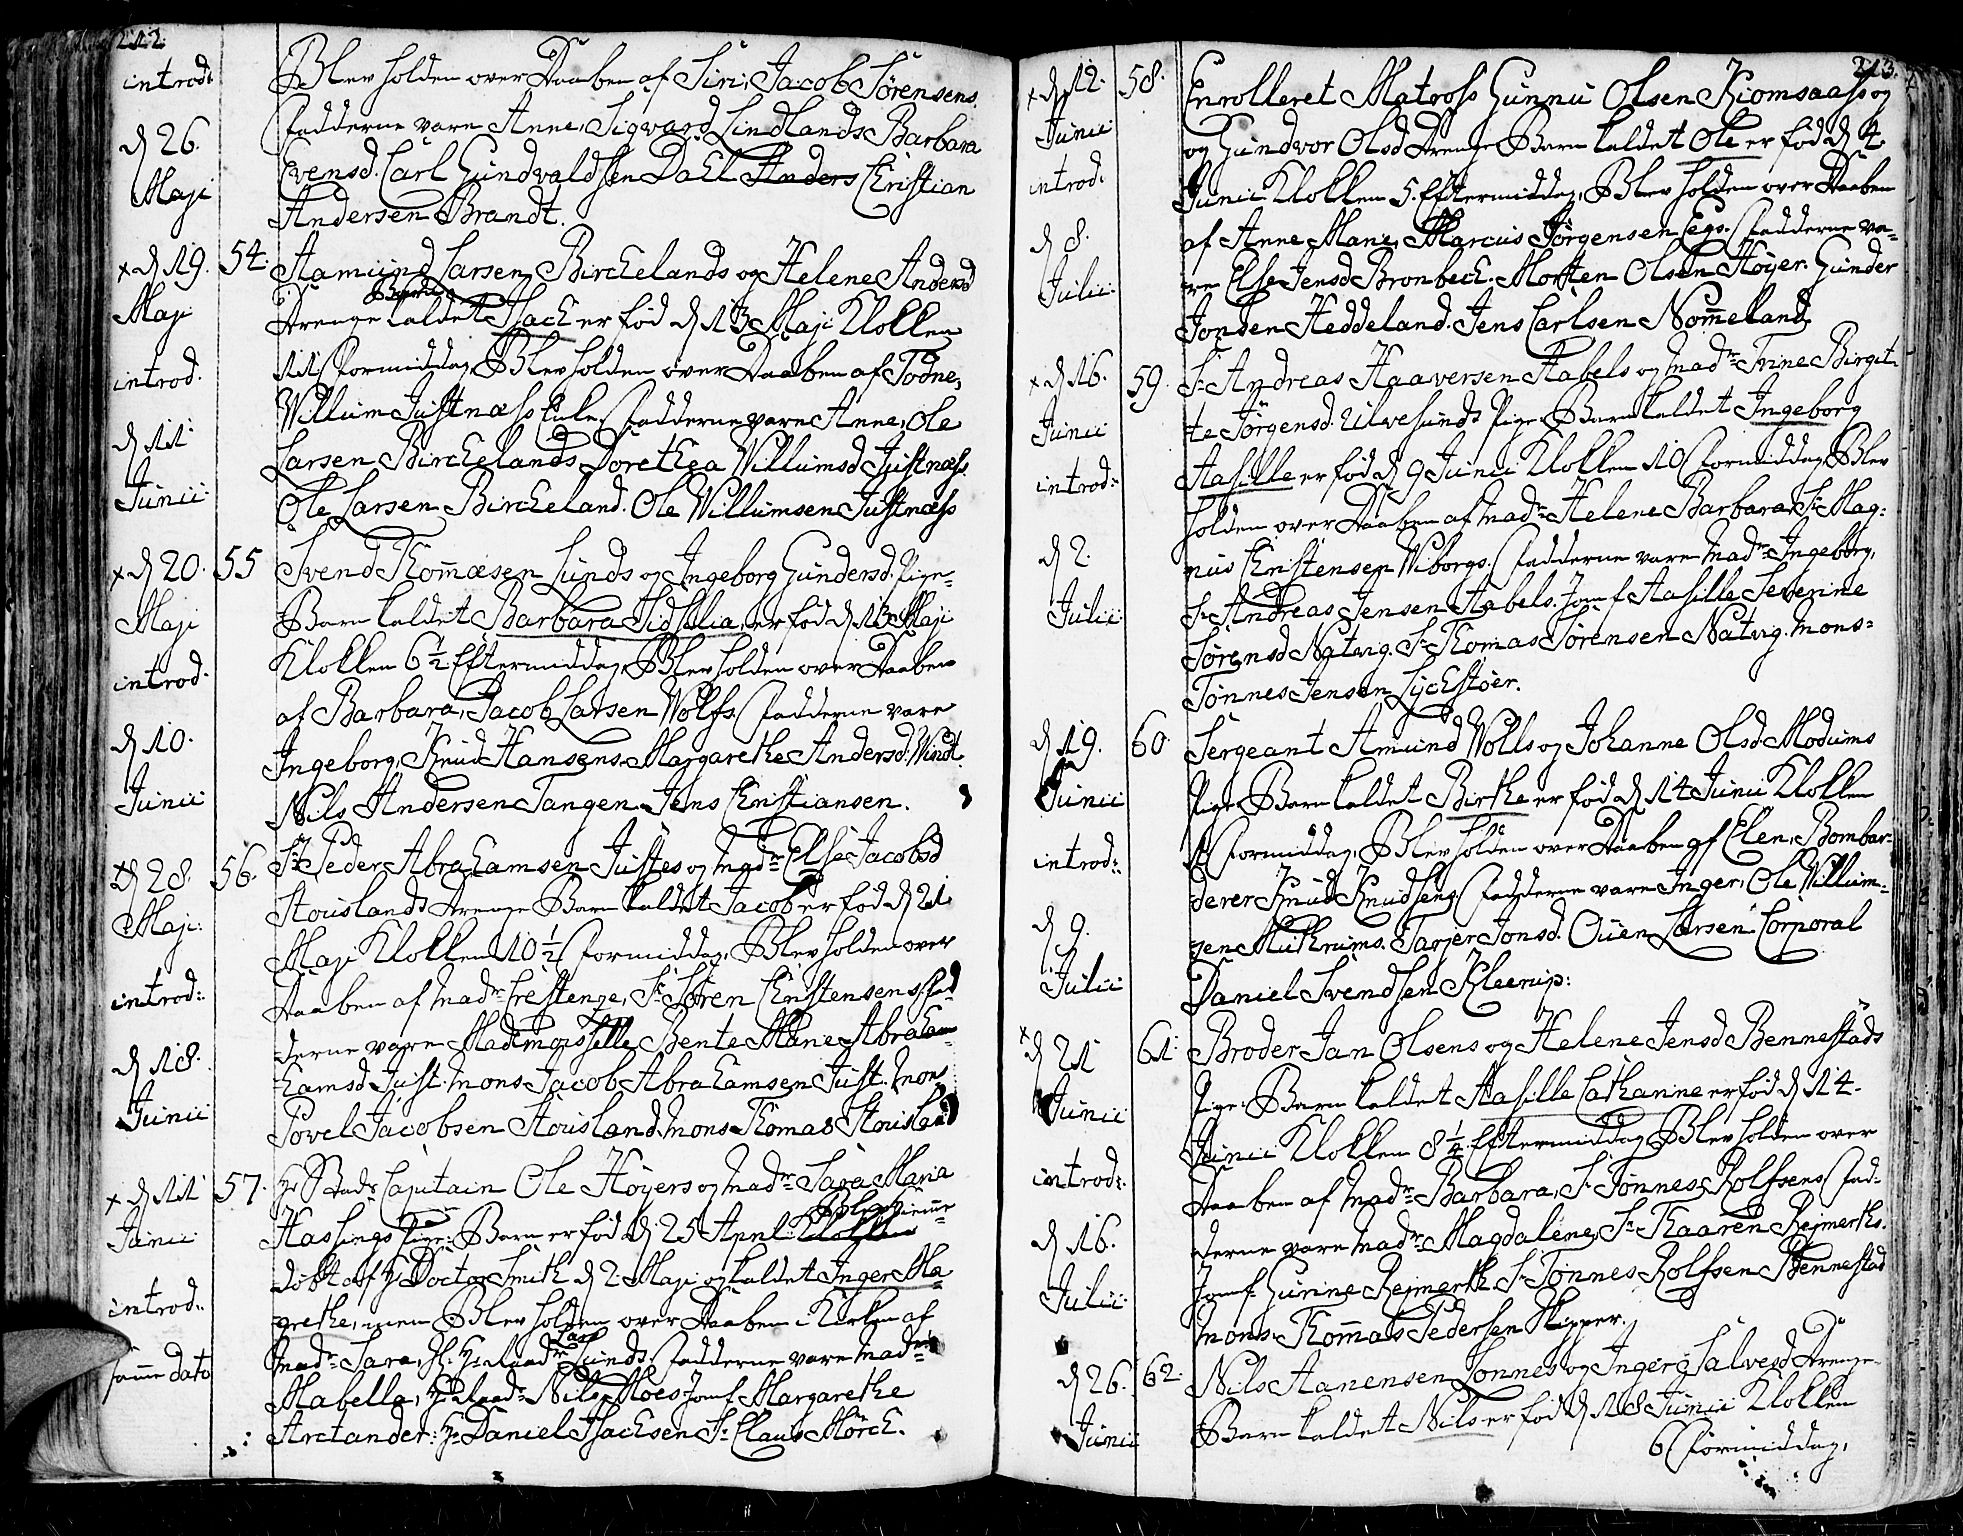 212.
introd:
Blev holden over Daaben af Siri, Jacob Sörensens.
Fadderne vare Anne, Sigvard Lindlands Barbara
d 26. Maji
Evensd. Carl Gundvaldsen Dahl Anders Christian
Andersen Brandt.
x d 19. Maji 54. Aamund Larsen Birchelands og Helene Andersd
Drenge Barn kaldet Isach er fød d 13 Maji Klokken
introd.
11 Formiddag, Blev holden over Daaben af Todne,
Willum Justnæss Enke, Fadderne vare Anne, Ole
d 11 Junii
Larsen Birchelands Dorethea Willumsd Justnæss.
Ole Larsen Bircheland. Ole Willumsen Justnæss
x d 20. Maji 55 Svend Thomæsen Lunds og Ingeborg Gundersd. Pige-
Barn kaldet Barbara Sidsilia, er fød d 13 Maji
Klokken 6½ Eftermiddag, Blev holden over Daaben
introd.
af Barbara, Jacob Larsen Wolfs. Fadderne vare
d 10. Junii
Ingeborg, Knud Hansens. Margarethe Andersd. Windt.
Nils Andersen Tangen. Jens Christiansen.
x d 28. Maji 56. Sr Peder Abrahamsen Justes og Madm Else Jacobsd
Stouslands Drenge Barn kaldet Jacob er fød d 21
Maji Klokken 10½ Formiddag, Blev holden over
introd:
Daaben af Madm Crestenze, Sr Sören Christensens, Fad-
derne vare Mademoiselle Bente Marie Abraham
d 18. Junii
hamsd Just. Mons Jacob Abrahamsen Just. Mons
Povel Jacobsen Stousland. Mons Thomas Stousland
x d 11 Junii 57. Hr Stads Capitain Ole Höyers og Madm Sara Maria
Hassings Pige-Barn er fød d 25 April Klokken Blev hjemme
döbt af Hr Doctor Smith d 2 Maji og kaldet Inger Ma
introd:
grethe, men Blev holden over Daaben i Kirken af
Madm Sara, Lars Lunds, Fadderne vare Madm
samme dato
Mabella, Nils Moes Jomf. Margarethe
Arctander: Hr Daniel Isachsen Sr Claus Mörch.
213.
x d 12. Junii 58. Enrolleret Matross Gunnu Olsen Kiomsaass og
og Gundvor Olsd Drenge Barn kaldet Ole er fød d 4.
introd:
Junii Klokken 5. Eftermiddag, Blev holden over Daaben
d 8. Julii
af Anne Marie, Marcus Jörgensen Eegs. Fadderne va-
re Else Jensd Bronbech. Morten Olsen Höyer. Gunder
Jonsen Heddeland. Jens Carlsen Nommeland.
x d 16. Junii 59. Sr Andreas Haaversen Aabels og Madm Trine Birgit-
te Jörgensd. Ulvesunds Pige Barn kaldet Ingeborg
introd:
Aasille er fød d 9 Junii Klokken 10 Formiddag, Blev
holden over Daaben af Madm Helene Barbara, Sr Mag-
d 2. Julii
nus Christensen Wiborgs. Fadderne vare Madm Ingeborg,
Sr Andreas Jensen Aabels. Jomf Aasille Severine
Sörensd Natvig. Sr Thomas Sörensen Natvig. Mons-
Tönnes Jensen Lyckstöer.
d 19. Junii 60. Sergeant Amund Wolls og Johanne Olsd Modums
Pige Barn kaldet Birthe er fød d 14 Junii Klokken
introd:
Formiddag, Blev holden over Daaben af Elen, Bombar-
derer Knud Knudsens, Fadderne vare Inger, Ole Willum-
d 9. Julii
sen Tarjer Jonsd. Ouen Larsen Corporal
Daniel Svendsen Kleerup:
x d 21 Junii 61. Broder Jan Olsens og Helene Jensd Bennestads
Pige Barn kaldet Aasille Catharine er fød d 14.
Junii Klokken 8½ Eftermiddag, Blev holden over
introd:
Daaben af Madm Barbara, Sr Tönnes Rolfsens, Fad-
d 16. Julii
derne vare Madm Magdalene, Sr Kaaren Rejmerths.
Jomf Gurine Rejmerth Sr Tönnes Rolfsen Bennestad
Mons. Thomas Pedersen Skipper.
d 26. Junii 62. Nils Aanensen Lonnes og Inger Salvesd Drenge
Barn kaldet Nils er fød d 18 Junii Klokken
6 Formiddag,